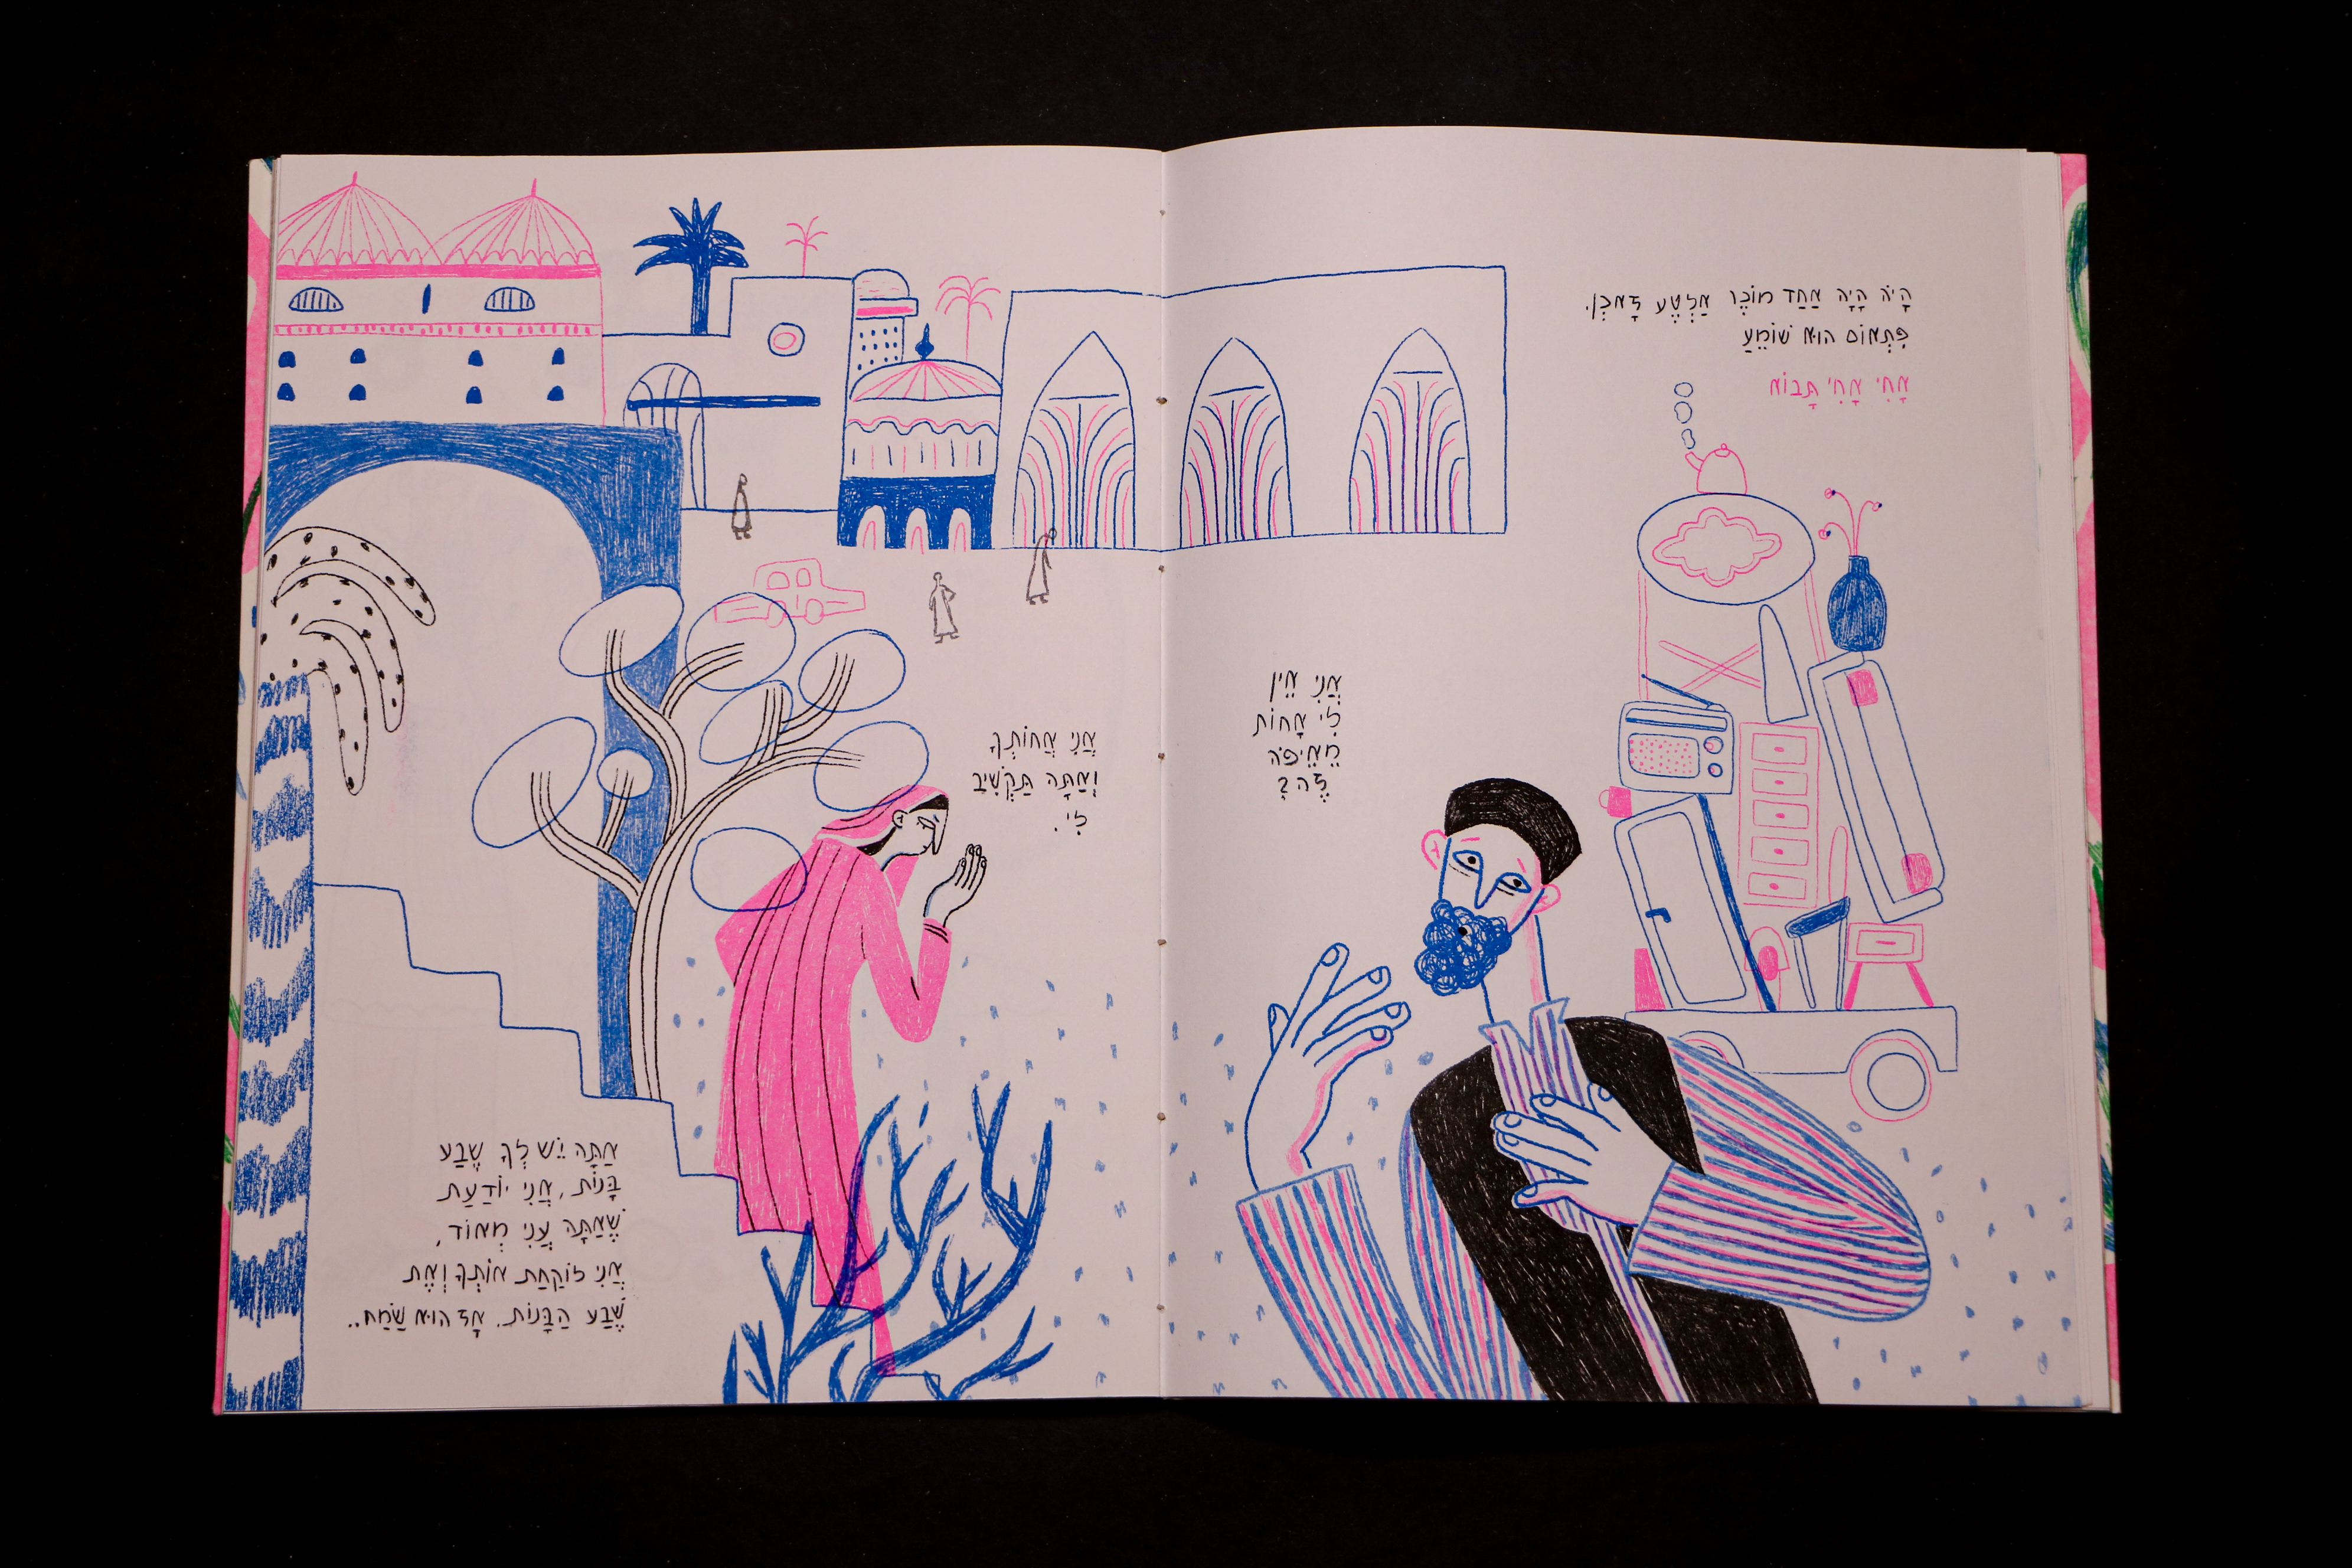 הָיֹה הָיָה אַחַד מוֹכֶר אַלְטֶע זָאכְן.
פִּתְאוֹם הוּא שׁוֹמֵעַ
אָחִי אָחִי תָּבוֹא
אֲנִי אֵין
לִי אָחוֹת
מֵאֵיפֹה
זֶה?
אֲנִי אֲחוֹתְךָ
וְאַתָּה תַּקְשִׁיב
לִי.
אַתָּה יֵשׁ לְךָ שֶׁבַע
בָּנוֹת, אֲנִי יוֹדַעַת
שֶׁאַתָּה עָנִי מְאוֹד,
אֲנִי לוֹקַחַת אוֹתְךָ וְאֶת
שֶׁבַע הַבָּנוֹת. אָז הוּא שָׂמַח..